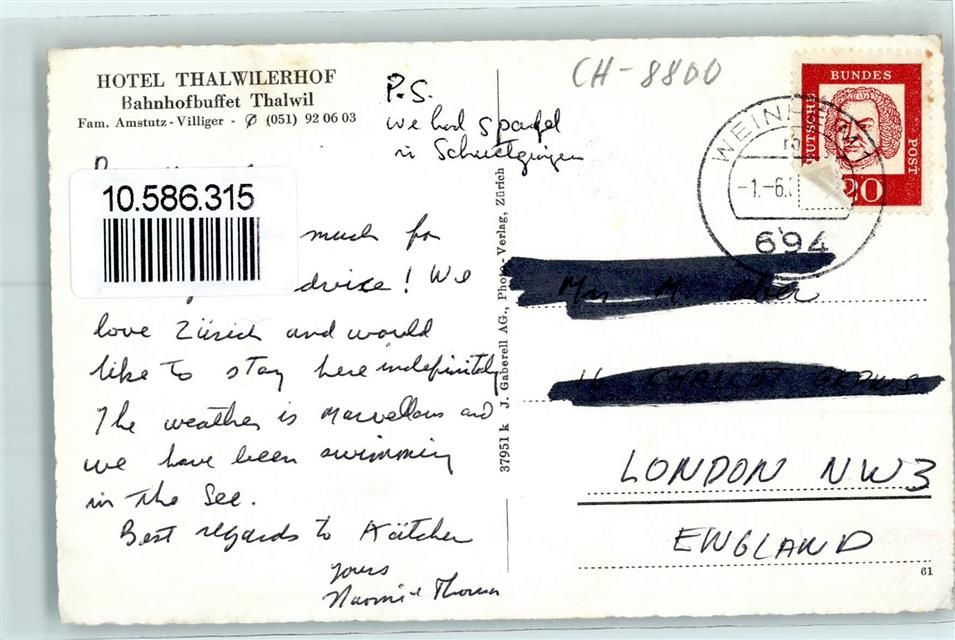 HOTEL THALWILERHOF
Bahnhofbuffet Thalwil
Fam. Amstutz-Villiger - ✆ (051) 92 06 03
P.S.
we had Spargel
in
CH-8800
DEUTSCHE
BUNDES
POST
20
WEINHEIM
-1.-6.
694
10.586.315
much for
advice! We
love Zürich and would
like to stay here indefinitely
The weather is marvellous and
we have been swimming
in the See.
Best regards to Kätchen
yours
Naomi + Thomas
37951 k J. Gaberell AG., Photo-Verlag, Zürich
LONDON NW3
ENGLAND
61